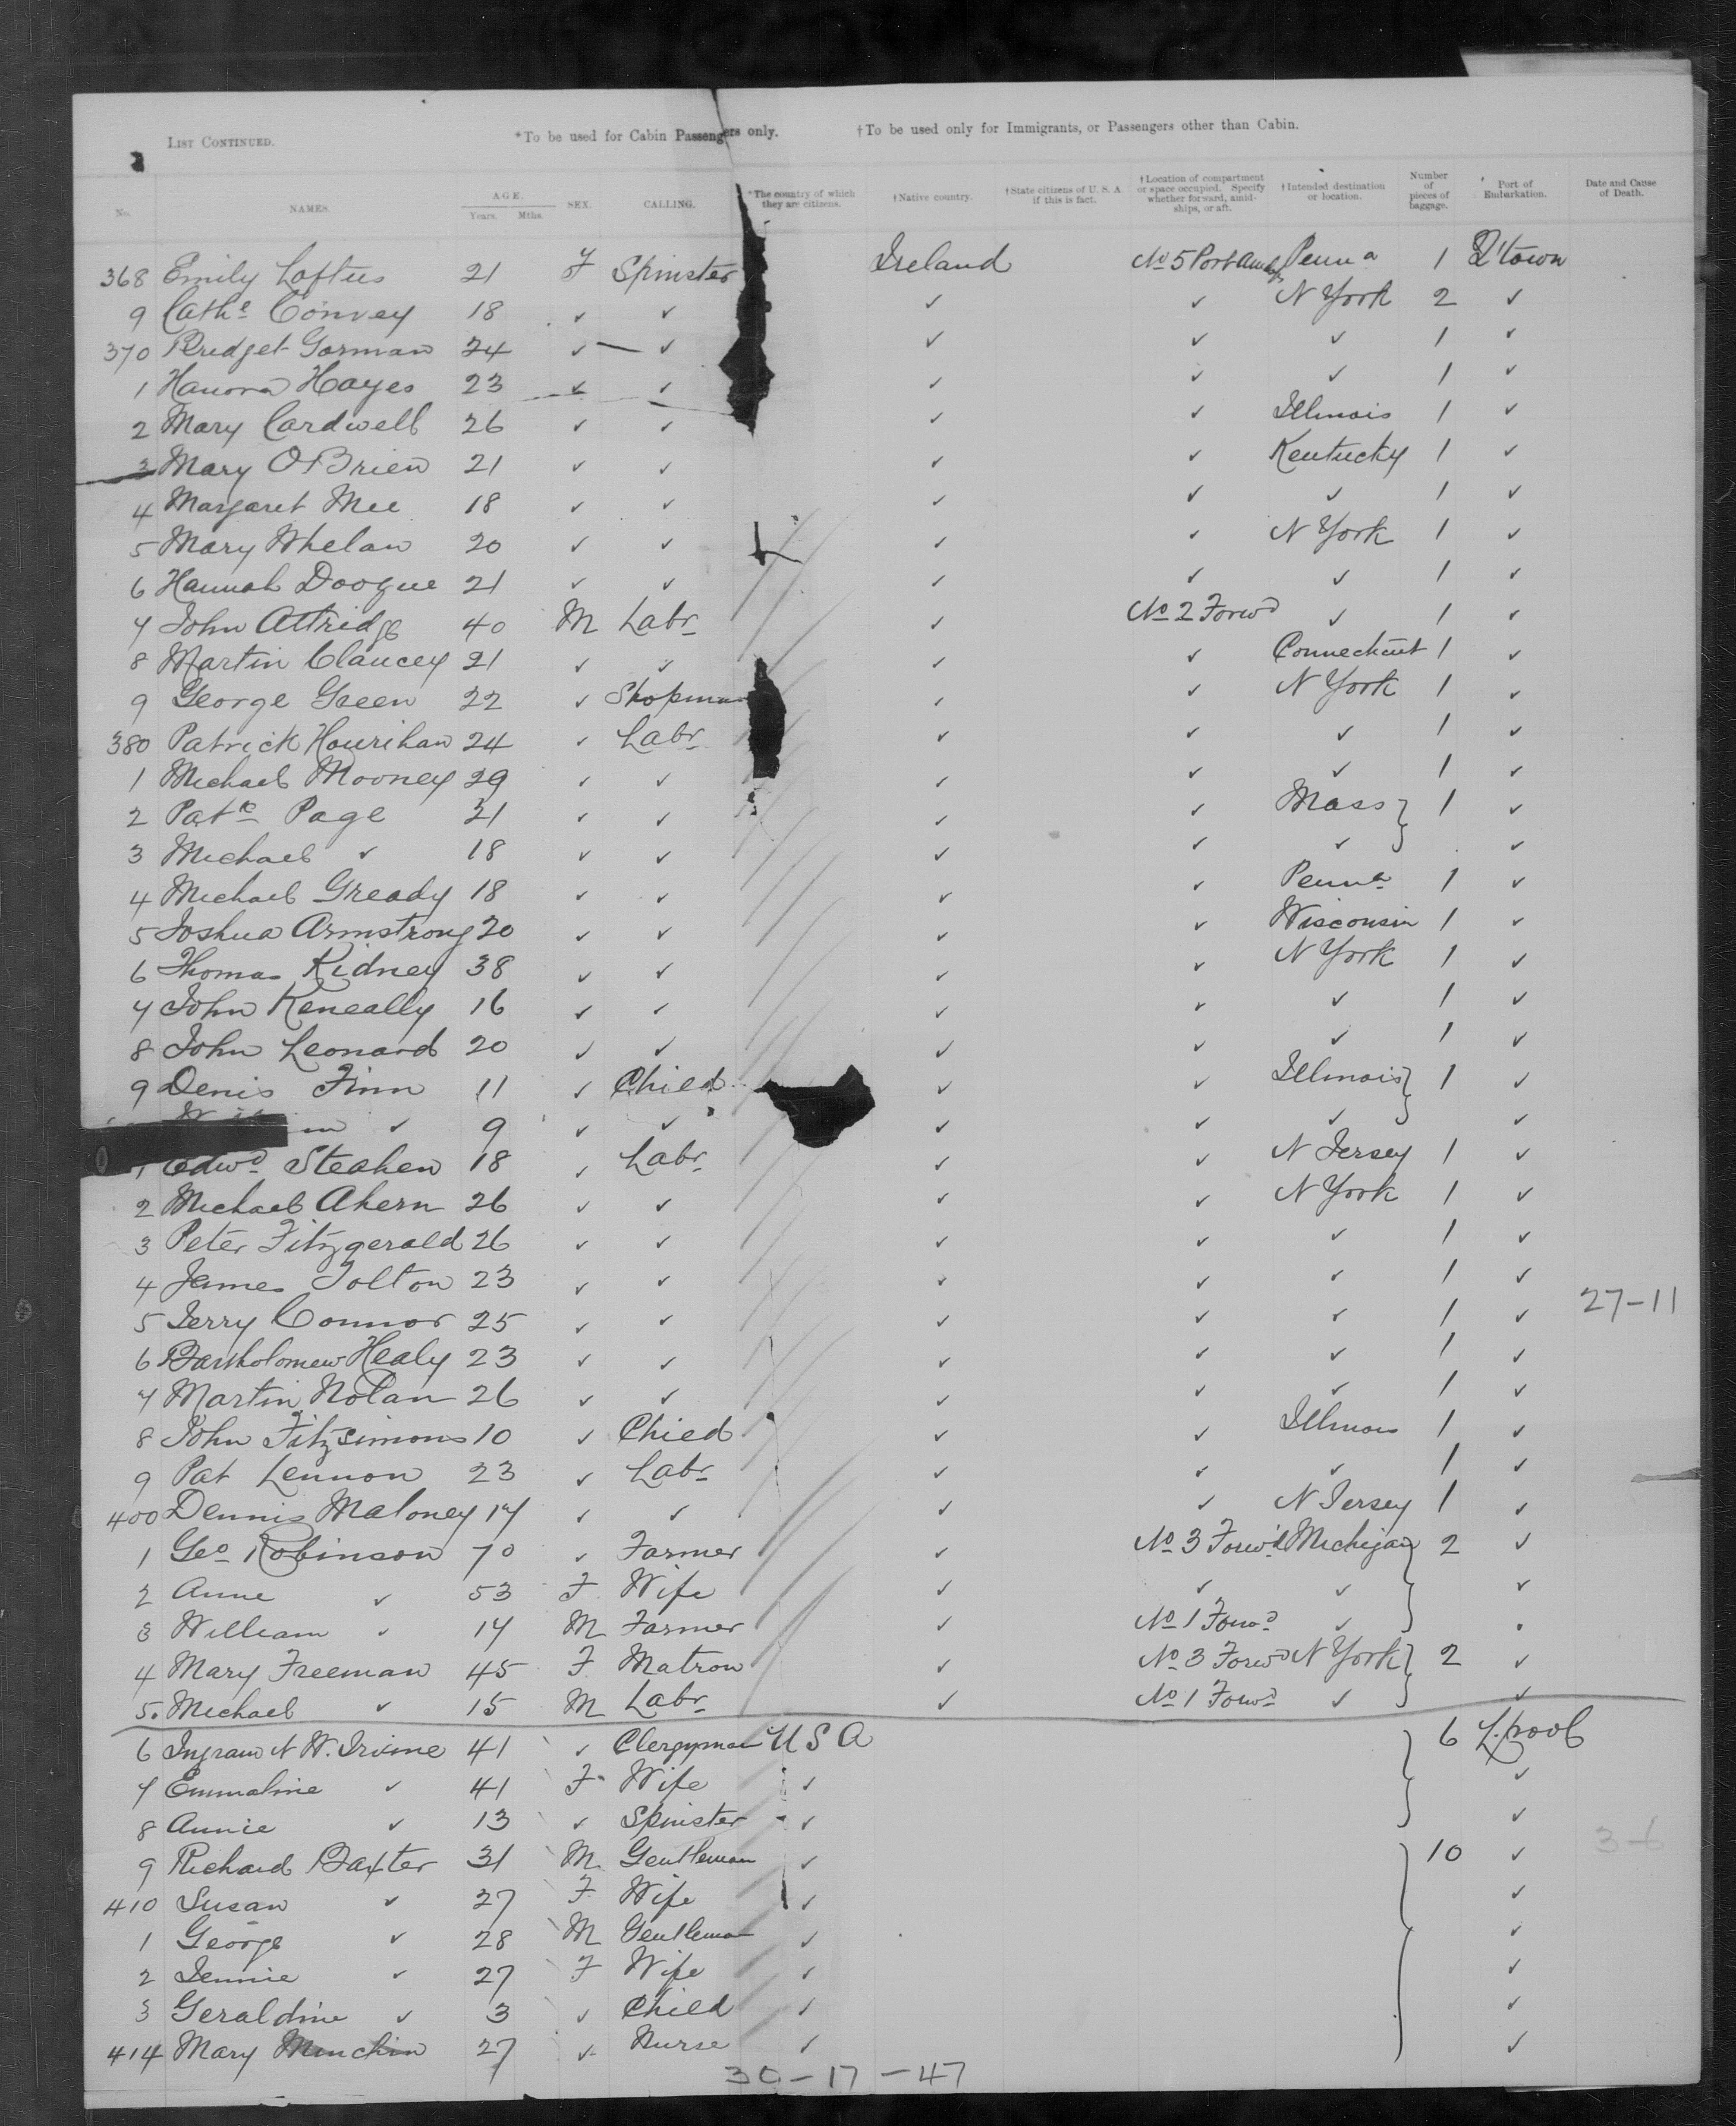 LIST CONTINUED. *To be used for Cabin Passengers only. †To be used only for Immigrants, or Passengers other than Cabin.
No. NAMES. AGE. Years. Mths. SEX. CALLING. *The country of which they are citizens. †Native country. †State citizens of U. S. A. if this is fact. †Location of compartment or space occupied. Specify whether forward, amidships, or aft. †Intended destination or location. Number of pieces of baggage. Port of Embarkation. Date and Cause of Death.
368 Emily Loftus 21 F Spinster Ireland No 5 Port Penna 1 Q'town
9 Cathe Convey 18 ✓ ✓ ✓ ✓ N York 2 ✓
370 Bridget Gorman 24 ✓ ✓ ✓ ✓ ✓ 1 ✓
1 Hanora Hayes 23 ✓ ✓ ✓ ✓ ✓ 1 ✓
2 Mary Cardwell 26 ✓ ✓ ✓ ✓ Illinois 1 ✓
3 Mary O'Brien 21 ✓ ✓ ✓ ✓ Kentucky 1 ✓
4 Margaret Mee 18 ✓ ✓ ✓ ✓ ✓ 1 ✓
5 Mary Whelan 20 ✓ ✓ ✓ ✓ N York 1 ✓
6 Hannah Doogue 21 ✓ ✓ ✓ ✓ ✓ 1 ✓
7 John Attridge 40 M Labr ✓ No 2 Forwd ✓ 1 ✓
8 Martin Clancey 21 ✓ ✓ ✓ ✓ Connecticut 1 ✓
9 George Green 22 ✓ Shopman ✓ ✓ N York 1 ✓
380 Patrick Hourihan 24 ✓ Labr ✓ ✓ ✓ 1 ✓
1 Michael Mooney 29 ✓ ✓ ✓ ✓ ✓ 1 ✓
2 Patk Page 21 ✓ ✓ ✓ ✓ Mass 1 ✓
3 Michael ✓ 18 ✓ ✓ ✓ ✓ ✓ ✓
4 Michael Gready 18 ✓ ✓ ✓ ✓ Penna 1 ✓
5 Joshua Armstrong 20 ✓ ✓ ✓ ✓ Wisconsin 1 ✓
6 Thomas Kidney 38 ✓ ✓ ✓ ✓ N York 1 ✓
7 John Keneally 16 ✓ ✓ ✓ ✓ ✓ 1 ✓
8 John Leonard 20 ✓ ✓ ✓ ✓ ✓ 1 ✓
9 Denis Finn 11 ✓ Child ✓ ✓ Illinois 1 ✓
✓ 9 ✓ ✓ ✓ ✓ ✓ ✓
1 Edwd Steaken 18 ✓ Labr ✓ ✓ N Jersey 1 ✓
2 Michael Ahern 26 ✓ ✓ ✓ ✓ N York 1 ✓
3 Peter Fitzgerald 26 ✓ ✓ ✓ ✓ ✓ 1 ✓
4 James Tolton 23 ✓ ✓ ✓ ✓ ✓ 1 ✓
27-11
5 Jerry Connor 25 ✓ ✓ ✓ ✓ ✓ 1 ✓
6 Bartholomew Healy 23 ✓ ✓ ✓ ✓ ✓ 1 ✓
7 Martin Nolan 26 ✓ ✓ ✓ ✓ ✓ 1 ✓
8 John Fitzsimons 10 ✓ Child ✓ ✓ Illinois 1 ✓
9 Pat Lennon 23 ✓ Labr ✓ ✓ ✓ 1 ✓
400 Dennis Maloney 17 ✓ ✓ ✓ ✓ N Jersey 1 ✓
1 Geo Robinson 70 ✓ Farmer ✓ No 3 Forwd Michigan 2 ✓
2 Anne ✓ 53 F Wife ✓ ✓ ✓ ✓
3 William ✓ 17 M Farmer ✓ No 1 Forwd ✓
4 Mary Freeman 45 F Matron ✓ No 3 Forwd N York 2 ✓
5. Michael ✓ 15 M Labr ✓ No 1 Forwd ✓ ✓
6 Ingram N W. Irvine 41 ✓ Clergyman U S A 6 L.pool
7 Emmaline ✓ 41 F Wife ✓ ✓
8 Annie ✓ 13 ✓ Spinster ✓ ✓
3-6
9 Richard Baxter 31 M Gentleman ✓ 10 ✓
410 Susan ✓ 27 F Wife ✓ ✓
1 George ✓ 28 M Gentleman ✓ ✓
2 Jennie ✓ 27 F Wife ✓ ✓
3 Geraldine ✓ 3 ✓ Child ✓ ✓
414 Mary Minchin 27 ✓ Nurse ✓ ✓
30-17-47